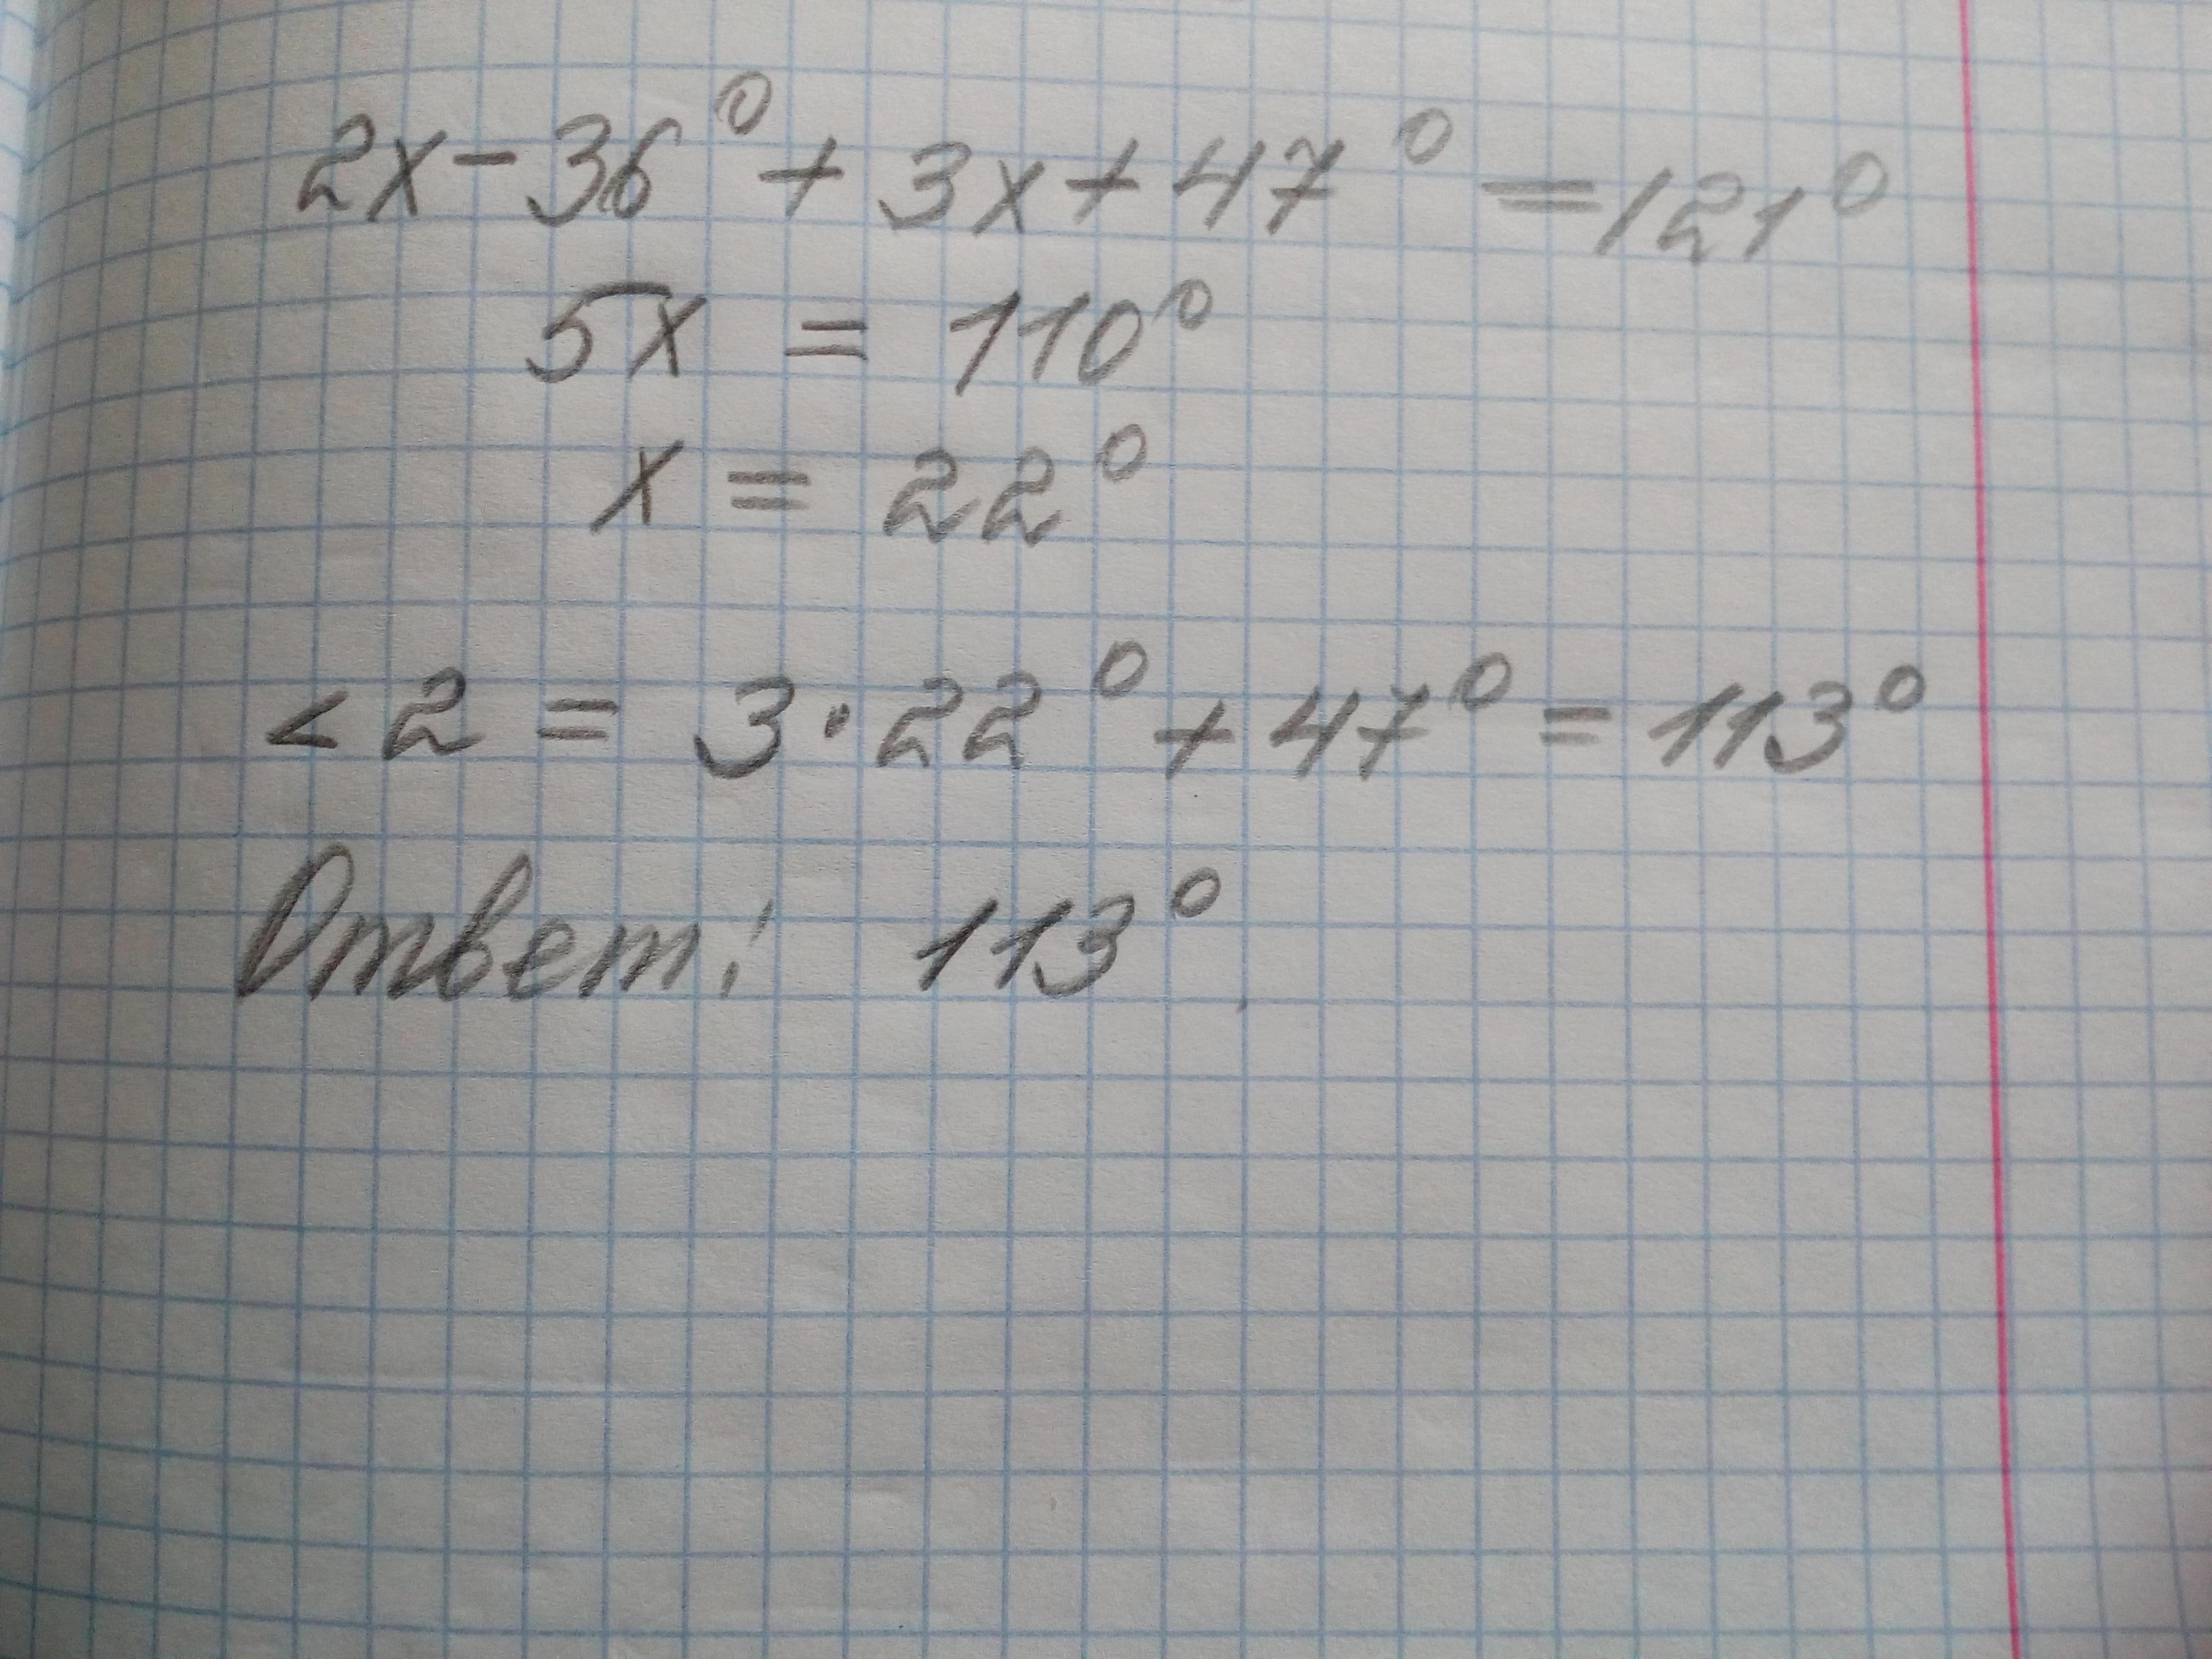 2x - 36° + 3x + 47° = 121°
5x = 110°
x = 22°
<2 = 3·22° + 47° = 113°
Ответ: 113°.